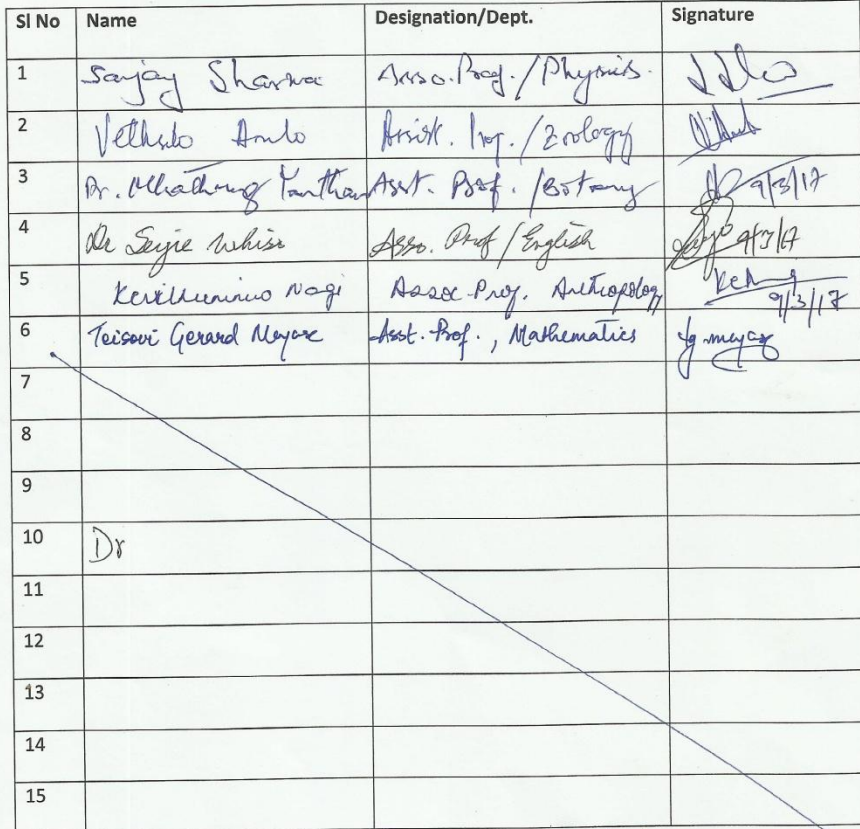 Sl No Name Designation/Dept. Signature
1 Sanjay Sharma Asso. Prof. / Physics.
2 Asist. Prof. / Zoology
3 Dr. Mhathung Yanthan Asst. Prof. / Botany 9/3/17
4 Dr Seyie Whiso Asso. Prof / English 9/3/17
5 Nagi Assoc. Prof. Anthropology 9/3/17
6 Teisovi Gerard Meyase Asst. Prof., Mathematics
7
8
9
10 Dr
11
12
13
14
15